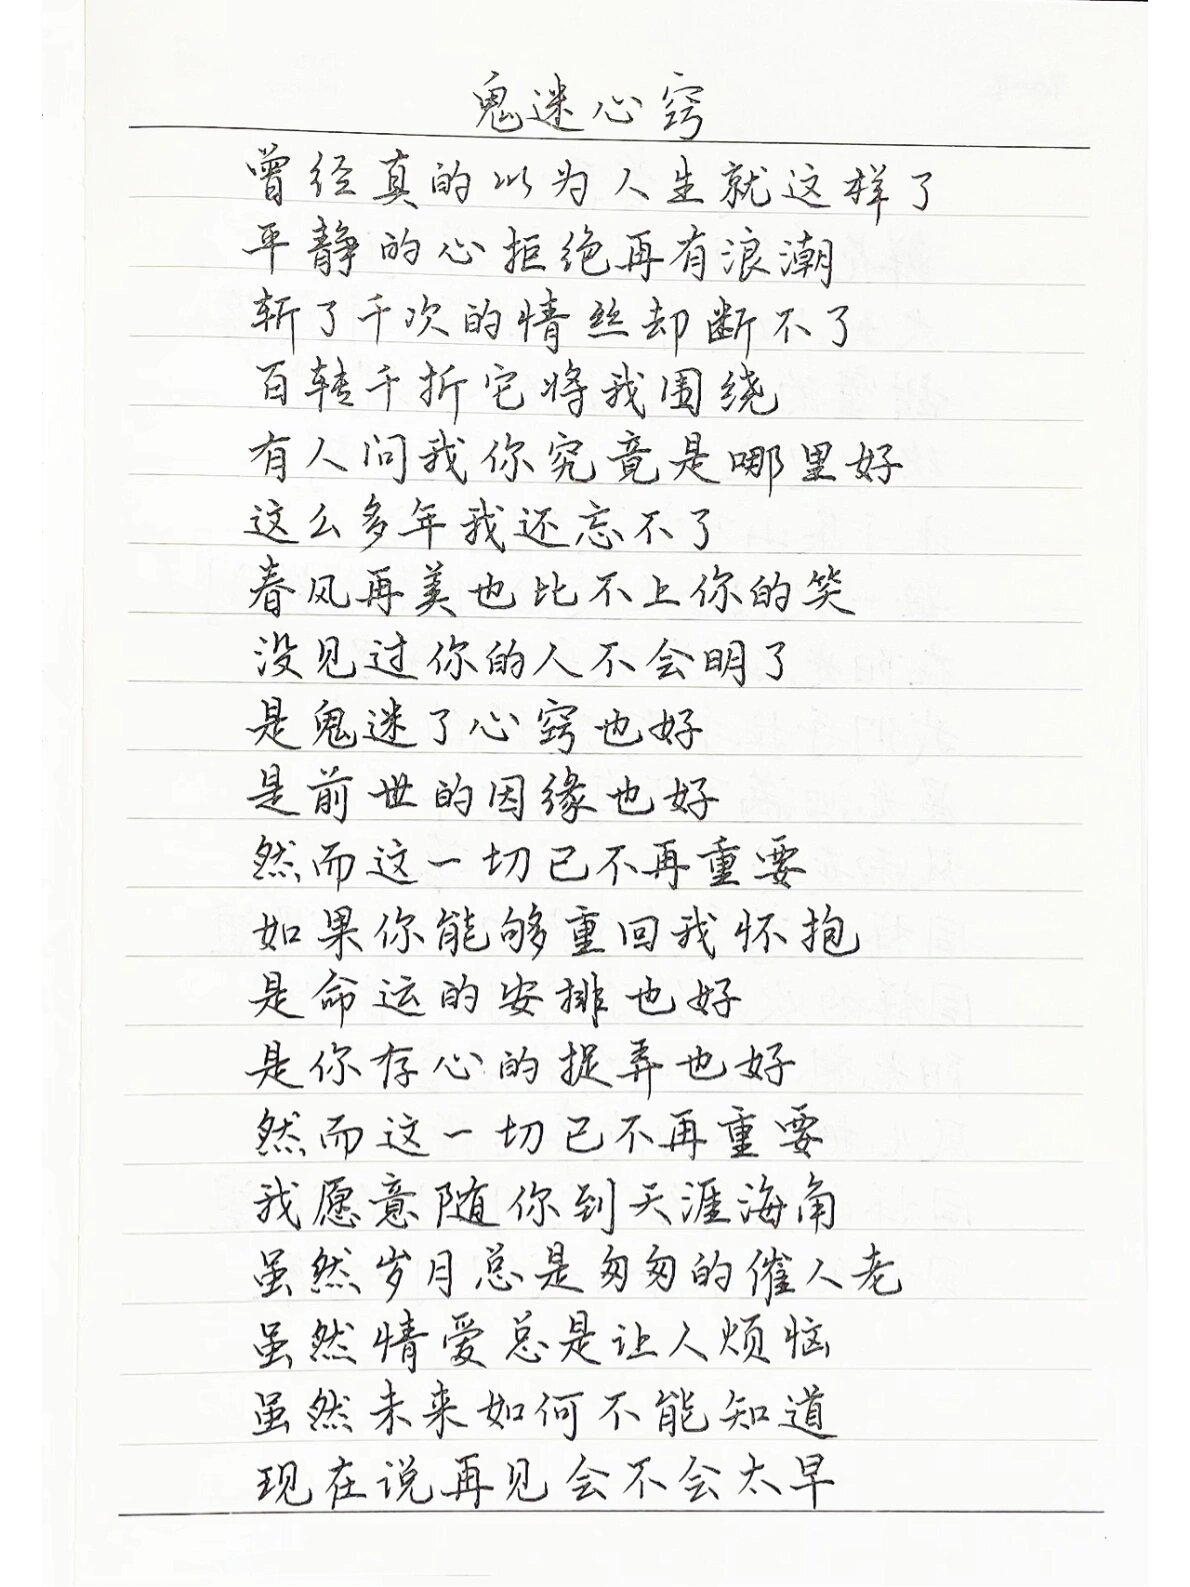 鬼迷心窍
曾经真的以为人生就这样了
平静的心拒绝再有浪潮
斩了千次的情丝却断不了
百转千折它将我围绕
有人问我你究竟是哪里好
这么多年我还忘不了
春风再美也比不上你的笑
没见过你的人不会明了
是鬼迷了心窍也好
是前世的因缘也好
然而这一切已不再重要
如果你能够重回我怀抱
是命运的安排也好
是你存心的捉弄也好
然而这一切已不再重要
我愿意随你到天涯海角
虽然岁月总是匆匆的催人老
虽然情爱总是让人烦恼
虽然未来如何不能知道
现在说再见会不会太早